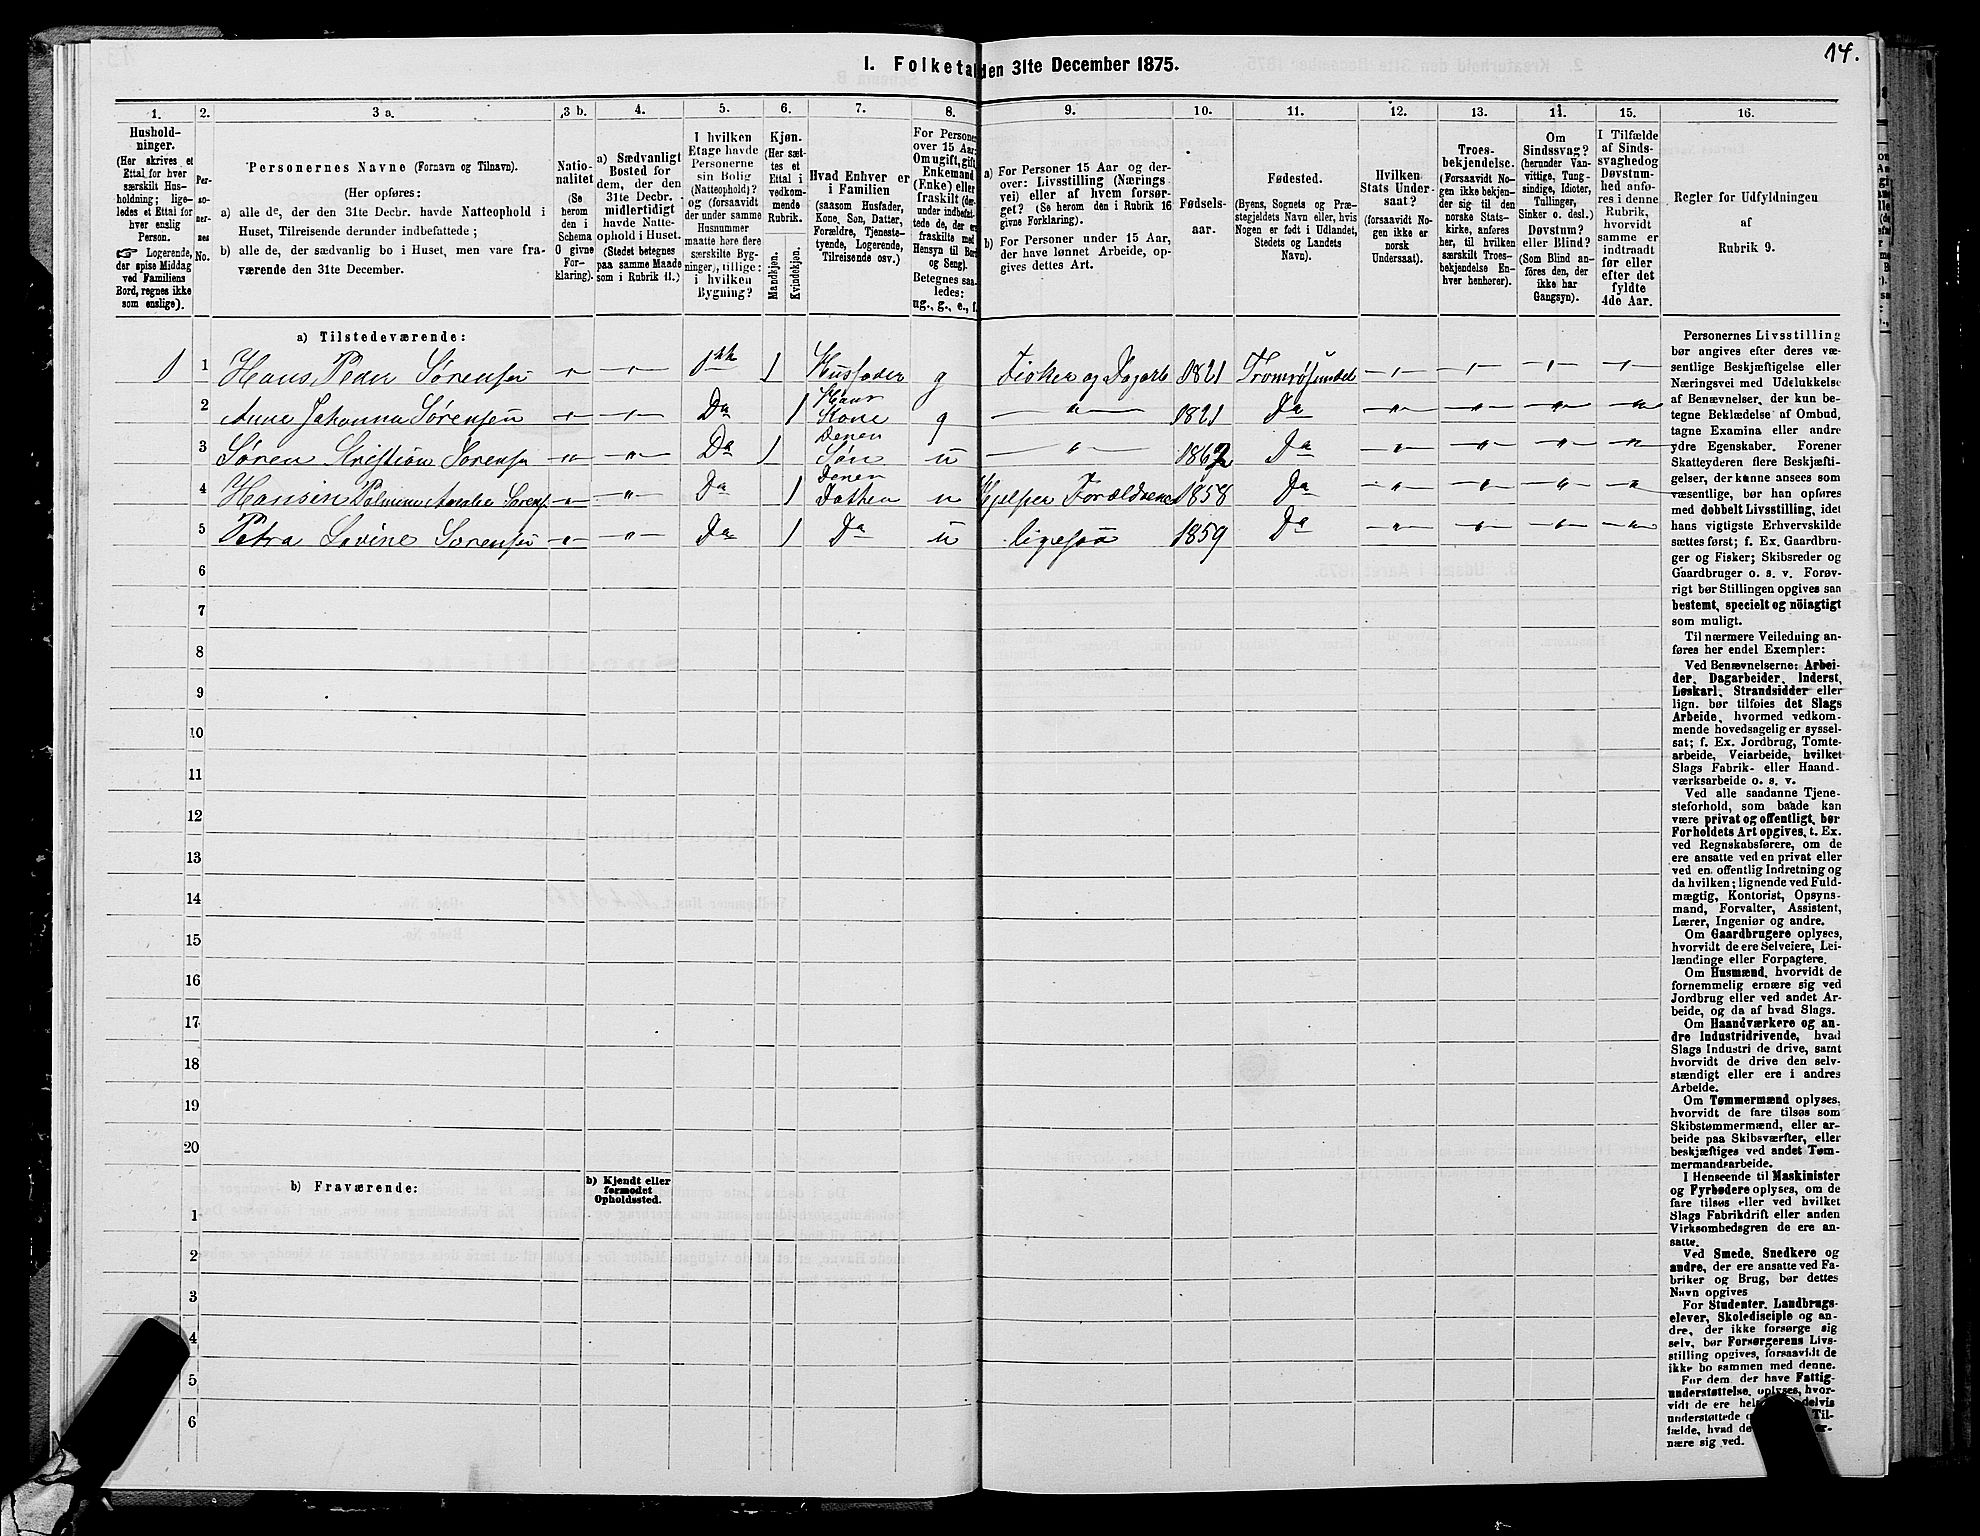 14.
I. Folketal den 31te December 1875.
1.
Hushold-
ninger.
(Her skrives et
Ettal for hver
særskilt Hus-
holdning; lige-
ledes et Ettal for
hver enslig
Person.
☞ Logerende,
der spise Middag
ved Familiens
Bord, regnes ikke
som enslige).
2.
Per-
so-
ner-
nes
No.
3 a.
Personernes Navne (Fornavn og Tilnavn).
(Her opføres:
a) alle de, der den 31te Decbr. havde Natteophold i
Huset, Tilreisende derunder indbefattede;
b) alle de, der sædvanlig bo i Huset, men vare fra-
værende den 31te December.
3 b.
Natio-
nalitet
(Se
herom
den i
Schema
O givne
For-
klaring).
4.
a) Sædvanligt
Bosted for
dem, der den
31te Decbr.
midlertidigt
havde Natte-
ophold i Huset.
(Stedet betegnes
paa samme Maade
som i Rubrik 11.)
5.
I hvilken
Etage havde
Personerne
sin Bolig
(Natteophold)?
og (forsaavidt
der under samme
Husnummer
maatte høre flere
særskilte Byg-
ninger), tillige:
i hvilken
Bygning?
6.
Kjøn.
(Her sæt-
tes et
Ettal i
vedkom-
mende
Rubrik.
Mandkjøn.
Kvindekjøn.
7.
Hvad Enhver er
i Familien
(saasom Husfader,
Kone, Søn, Datter,
Forældre, Tjeneste-
tyende, Logerende,
Tilreisende osv.)
8.
For Personer
over 15 Aar:
Om ugift, gift,
Enkemand
(Enke) eller
fraskilt (der-
under indbefat-
tede de, der ere
fraskilte med
Hensyn til Bord
og Seng).
Betegnes saa-
ledes:
ug., g., e., f.
9.
a) For Personer 15 Aar og der-
over: Livsstilling (Nærings
vei) eller af hvem forsør-
get? (Se herom den i Rubrik 16
givne Forklaring).
b) For Personer under 15 Aar,
der have lønnet Arbeide, op-
gives dettes Art.
10.
Fødsels-
aar.
11.
Fødested.
(Byens, Sognets og Præ-
stegjeldets Navn eller, hvis
Nogen er født i Udlandet,
Stedets og Landets
Navn).
12.
Hvilken
Stats Under-
saat?
(forsaavidt No-
gen ikke er
norsk
Undersaat).
13.
Troes-
bekjendelse.
(Forsaavidt No-
gen ikke bekjen-
der sig til den
norske Stats-
kirke, anføres
her, til hvilken
særskilt Troes-
bekjendelse En-
hver henhører).
14.
Om
Sindssvag?
(herunder Van-
vittige, Tung-
sindige, Idioter,
Tullinger,
Sinker o. desl.)
Døvstum?
eller Blind?
(Som Blind an-
føres den, der
ikke har
Gangsyn).
15.
I Tilfælde
af Sinds-
svaghed og
Døvstum-
hed anfø-
res i denne
Rubrik,
hvorvidt
samme er
indtraadt
før eller
efter det
fyldte
4de Aar.
16.
Regler for Udfyldningen
af
Rubrik 9.
a) Tilstedeværende:
1 1 Hans Peder Sørensen 1ste 1 Husfader g Fisker og Dagarb 1821 Tromsøsundet
2 Anne Johanna Sørensen Do 1 Hans Kone g 1821 Do
3 Søren Kristian Sørensen Do 1 Deres Søn u 1862 Do
4 Hansine Amalia Sørens Do 1 Deres Datter u Hjelper Forældrene 1858 Do
5 Petra Lovine Sørensen Do 1 Do u ligesaa 1859 Do
6
7
8
9
10
11
12
13
14
15
16
17
18
19
20
b) Fraværende:
b) Kjendt eller
formodet
Opholdssted.
1
2
3
4
5
6
Personernes Livsstilling
bør angives efter deres væ-
sentlige Beskjæftigelse eller
Næringsvei med Udelukkelse
af Benævnelser, der kun be-
tegne Beklædelse af Ombud,
tagne Examina eller andre
ydre Egenskaber. Forener
Skatteyderen flere Beskjæfti-
gelser, der kunne ansees som
væsentlige, bør han opføres
med dobbelt Livsstilling, idet
hans vigtigste Erhvervskilde
sættes først; f. Ex. Gaardbru-
ger og Fisker; Skibsreder og
Gaardbruger o. s. v. Forøv-
rigt bør Stillingen opgives saa
bestemt, specielt og nöiagtigt
som muligt.
Til nærmere Veiledning an-
føres her endel Exempler:
Ved Benævnelserne: Arbei-
der, Dagarbeider, Inderst,
Løskarl, Strandsidder eller
lign. bør tilføies det Slags
Arbeide, hvormed vedkom-
mende hovedsagelig er syssel-
sat; f. Ex. Jordbrug, Tomte-
arbeide, Veiarbeide, hvilket
Slags Fabrik- eller Haand-
værksarbeide o. s. v.
Ved alle saadanne Tjene-
steforhold, som baade kan
være privat og offentligt, bør
Forholdets Art opgives, t. Ex.
ved Regnskabsførere, om de
ere ansatte ved en privat eller
ved en offentlig Indretning og
da hvilken; lignende ved Fuld-
mægtig, Kontorist, Opsyns-
mand, Forvalter, Assistent,
Lærer, Ingeniør og andre.
Om Gaardbrugere oplyses,
hvorvidt de ere Selveiere, Lei-
lændinge eller Forpagtere.
Om Husmænd, hvorvidt de
fornemmelig ernære sig ved
Jordbrug eller ved andet Ar-
beide, og da af hvad Slags.
Om Haandværkere og an-
dre Industridrivende, hvad
Slags Industri de drive, samt
hvorvidt de drive den selv-
stændigt eller ere i andres
Arbeide.
Om Tømmermænd oplyses,
hvorvidt de fare tilsøs som
Skibstømmermænd, eller ar-
beide paa Skibsværfter, eller
beskjæftiges ved andet Tøm-
mermandsarbeide.
I Henseende til Maskinister
og Fyrbødere oplyses, om de
fare tilsøs eller ved hvilket
Slags Fabrikdrift eller anden
Virksomhedsgren de ere an-
satte.
Ved Smede, Snedkere og
andre, der ere ansatte ved Fa-
briker og Brug, bør dettes
Navn opgives
For Studenter, Landbrugs-
elever, Skoledisciple og an-
dre, der ikke forsørge sig
selv, bør Forsørgerens Livs-
stilling opgives, forsaavidt de
ikke bo sammen med denne.
For dem, der have Fattig-
understøttelse, oplyses, hvor-
vidt de ere delvis
understøttede Til-
fælde, hvad de
nære sig ved.